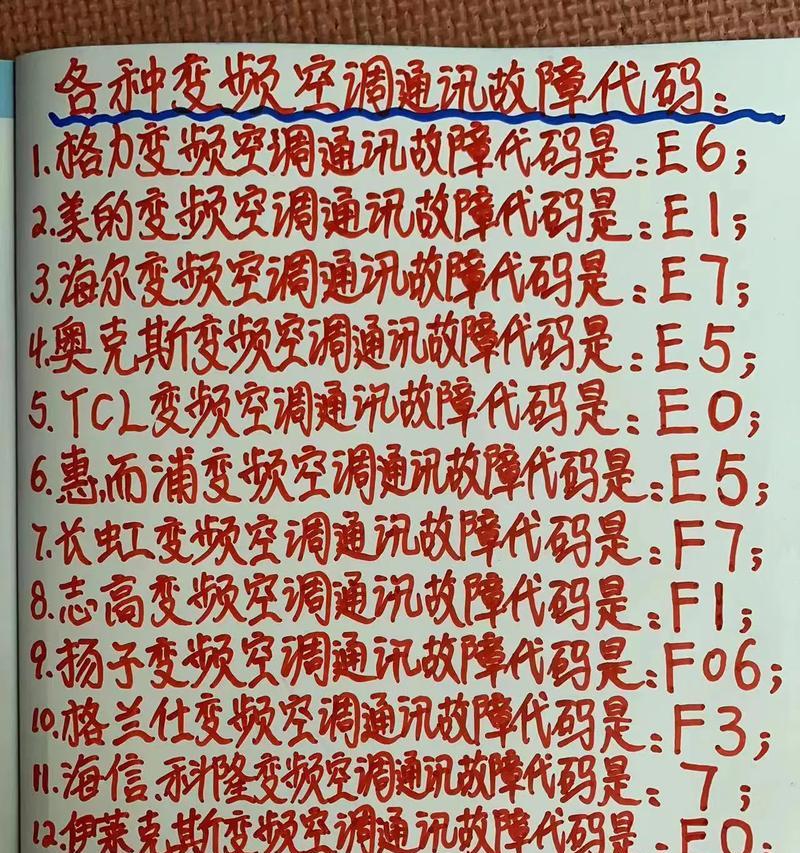 各种变频空调通讯故障代码:
1.格力变频空调通讯故障代码是:E6;
2.美的变频空调通讯故障代码是:E1;
3.海尔变频空调通讯故障代码是:E7;
4.奥克斯变频空调通讯故障代码是:E5;
5.TCL变频空调通讯故障代码是:E0;
6.惠而浦变频空调通讯故障代码是:E5;
7.长虹变频空调通讯故障代码是:F7;
8.志高变频空调通讯故障代码是:F1;
9.扬子变频空调通讯故障代码是:F06;
10.格兰仕变频空调通讯故障代码是:F3;
11.海信.科隆变频空调通讯故障代码是:7;
12.伊莱克斯变频空调通讯故障代码是: